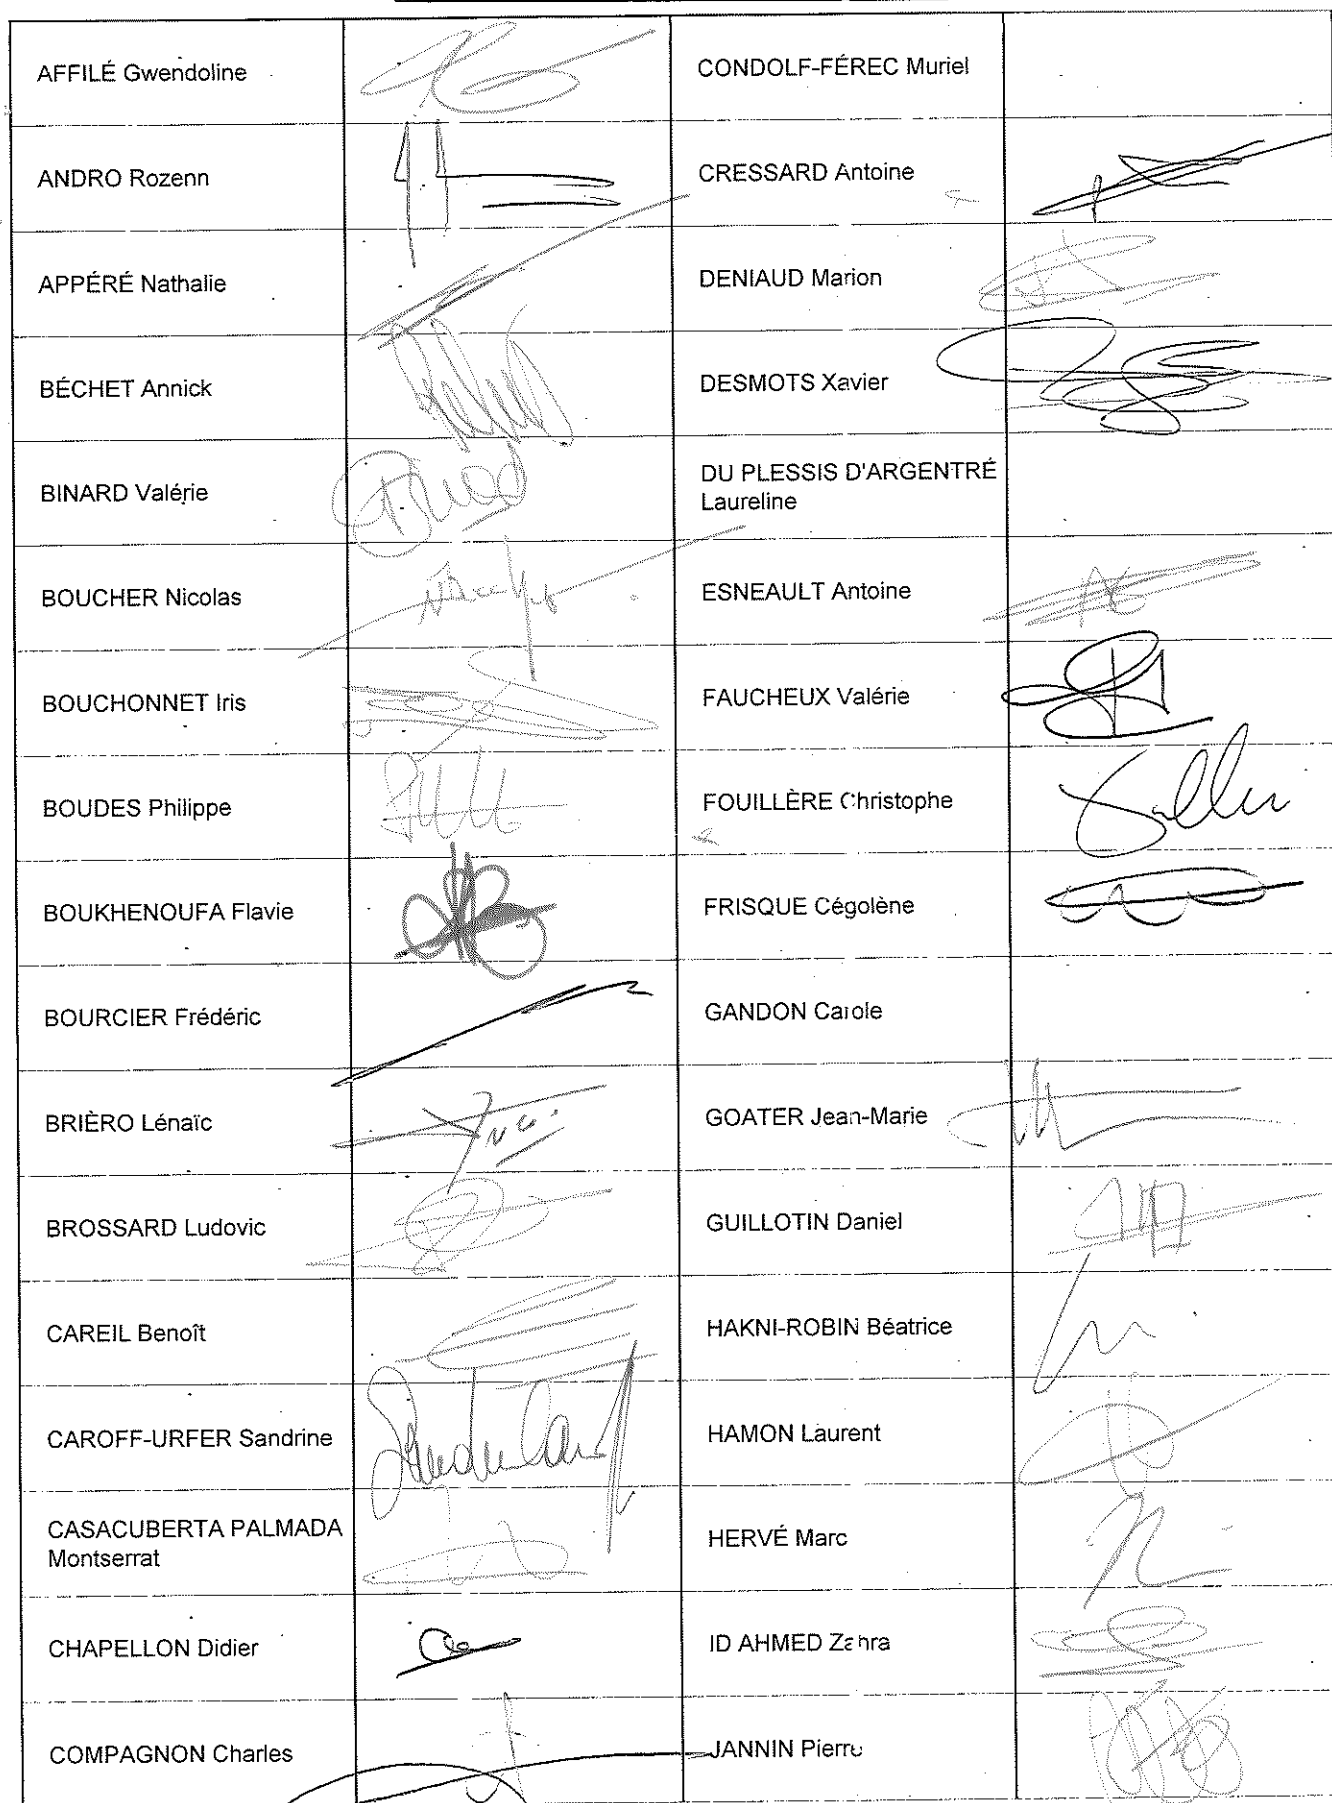 AFFILÉ Gwendoline
CONDOLF-FÉREC Muriel
ANDRO Rozenn
CRESSARD Antoine
APPÉRÉ Nathalie
DENIAUD Marion
BÉCHET Annick
DESMOTS Xavier
BINARD Valérie
DU PLESSIS D'ARGENTRÉ
Laureline
BOUCHER Nicolas
ESNEAULT Antoine
BOUCHONNET Iris
FAUCHEUX Valérie
BOUDES Philippe
FOUILLÈRE Christophe
BOUKHENOUFA Flavie
FRISQUE Cégolène
BOURCIER Frédéric
GANDON Carole
BRIÈRO Lénaïc
GOATER Jean-Marie
BROSSARD Ludovic
GUILLOTIN Daniel
CAREIL Benoît
HAKNI-ROBIN Béatrice
CAROFF-URFER Sandrine
HAMON Laurent
CASACUBERTA PALMADA
Montserrat
HERVÉ Marc
CHAPELLON Didier
ID AHMED Zahra
COMPAGNON Charles
JANNIN Pierre